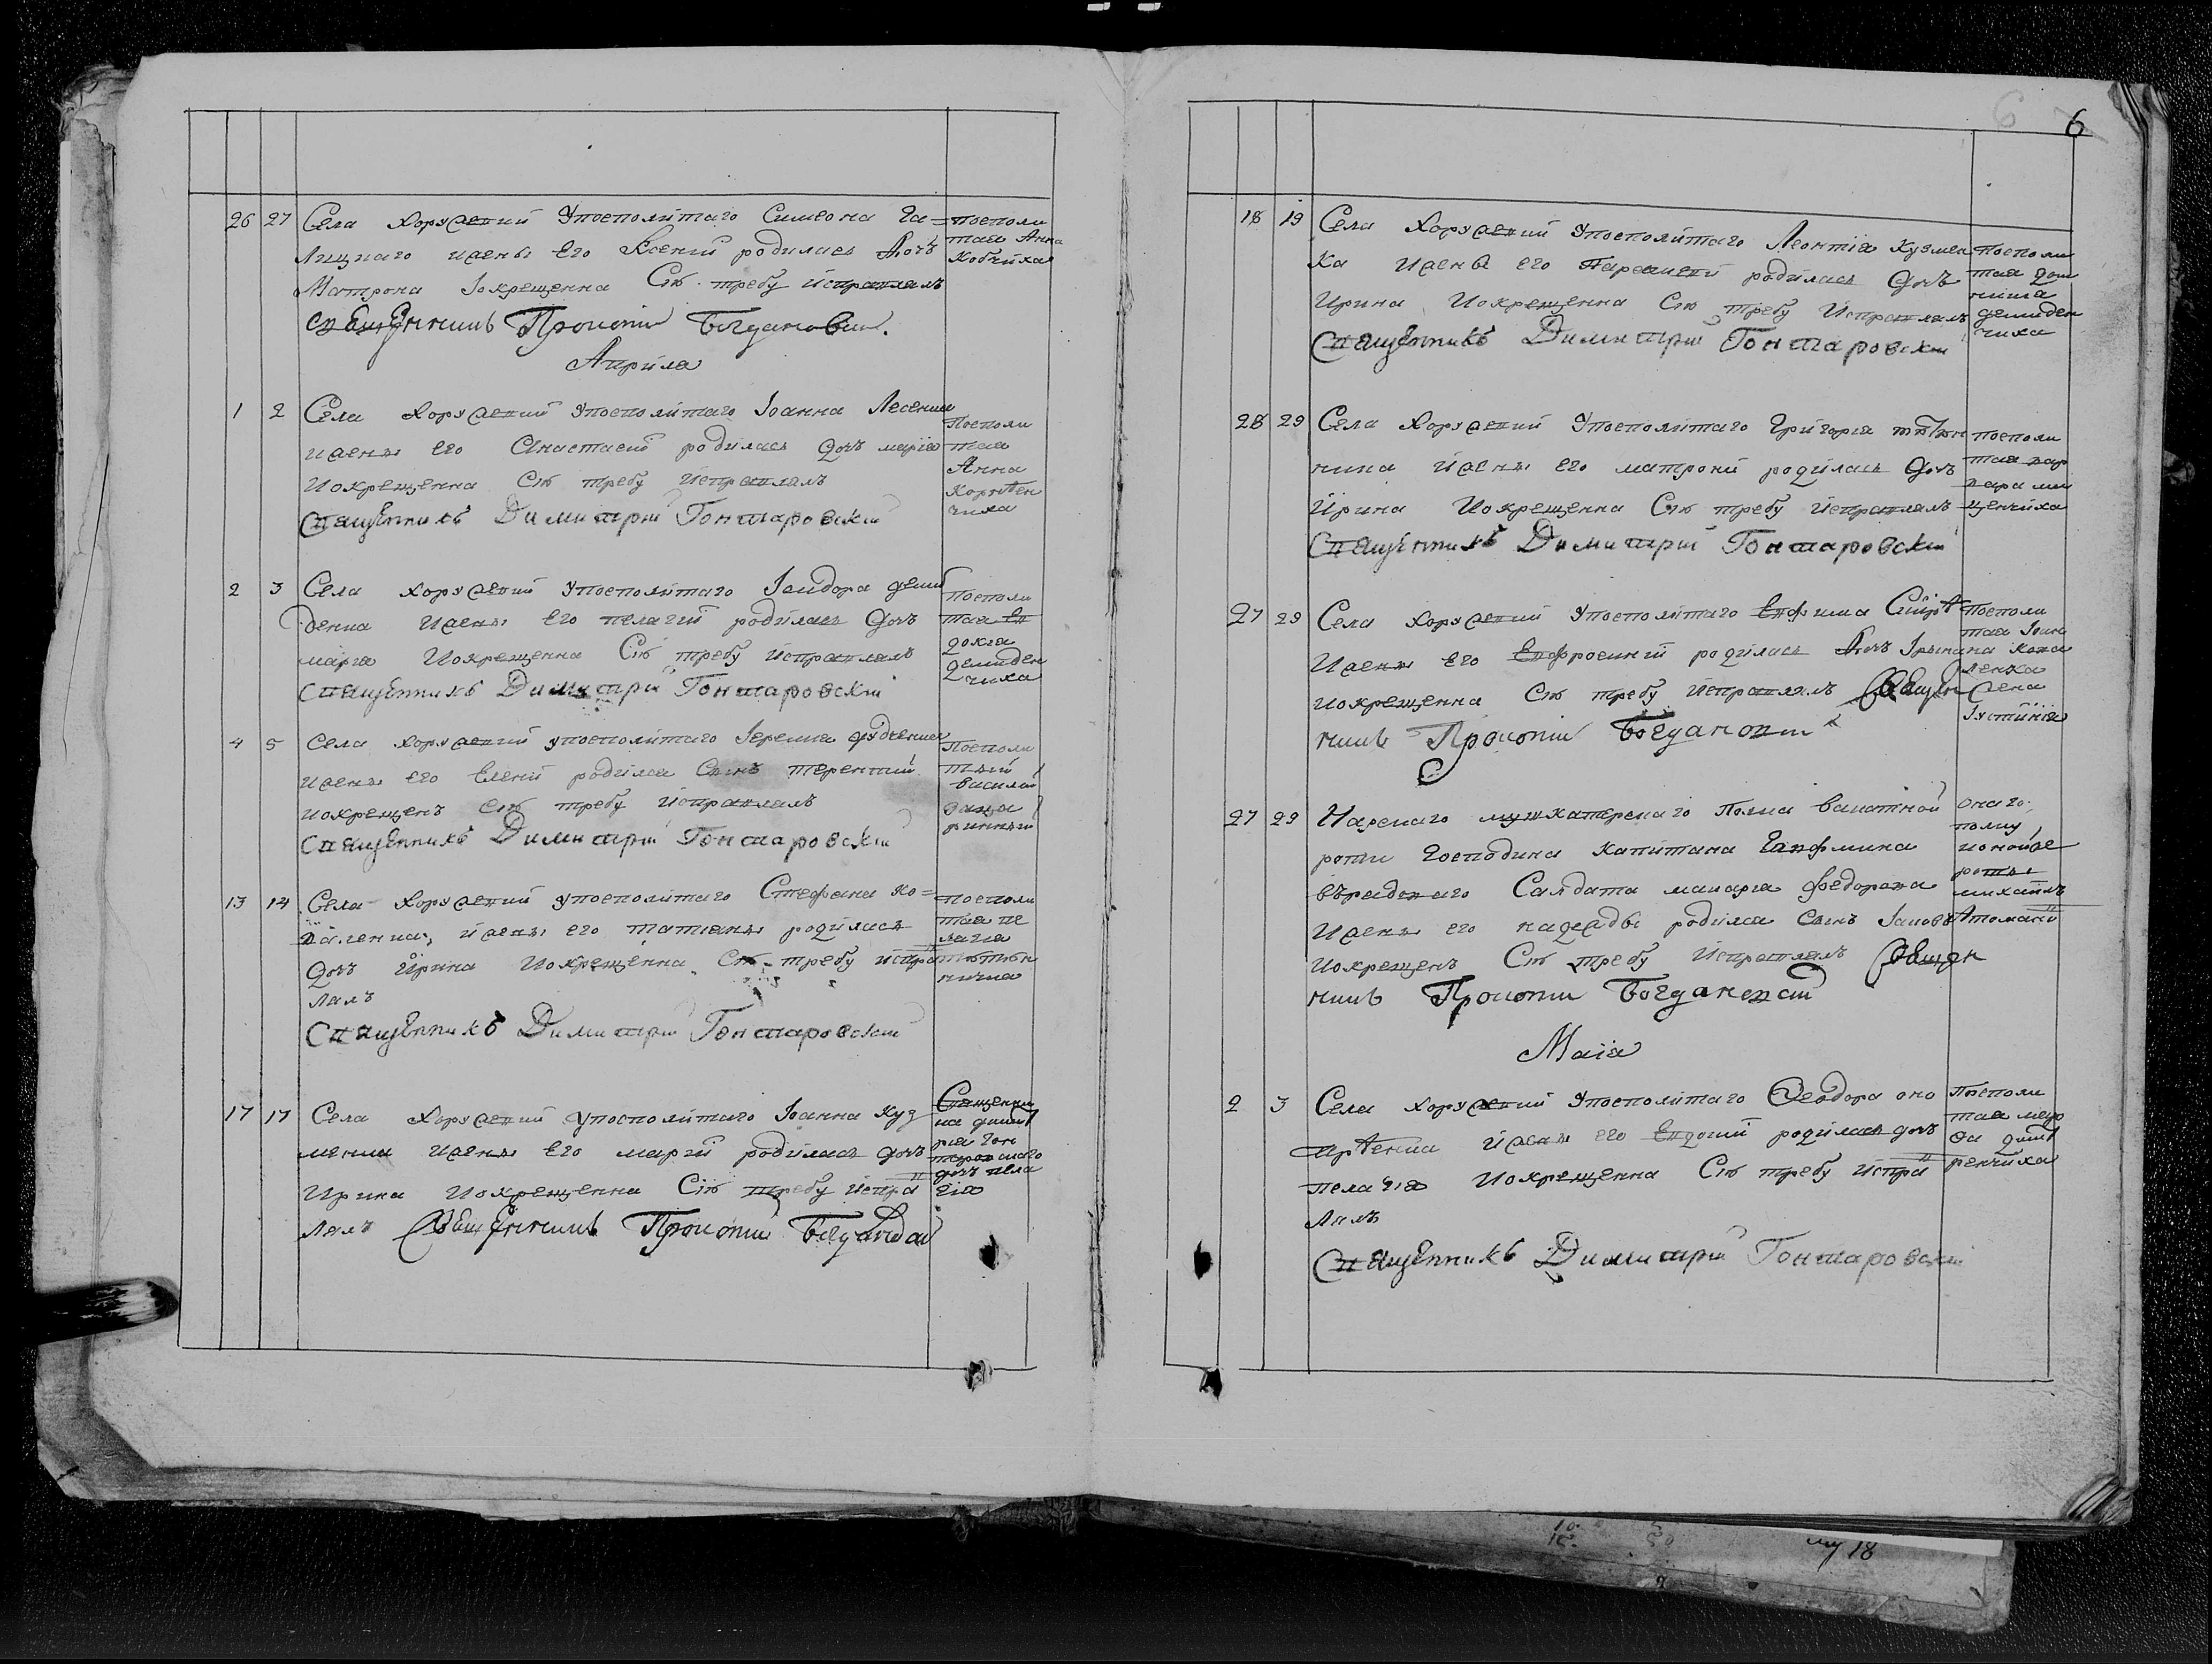 26 27 Села Хоружевки Упосполитаго Симеона Га=
лицкаго иżены Его Ксении родилась дочъ
Матрона Iокрещенна Сію требу исправлялъ
Священникъ Прокопий Богданович.
посполи
тая Анна
Кобчиха
Априля
1 2 Села Хоружевки Упосполитаго Iоанна Лесенка
ижены его Анастасии родилась дочъ мария
Иокрещенна Сию требу исправлялъ
Священникъ Димитрий Гонтаровский
Посполи
тая
Анна
чиха
2 3 Села Хоружевки Упосполитаго Iсидора деми
денка ижены Его пелагии родилась дочъ
мария Иокрещенна Сию требу исправлялъ
Священникъ Димитрий Гонтаровский
Посполи
тая Ев
докия
демиден
чиха
4 5 Села Хоружевки упосполитаго Iеремия дудченка
ижены его Елены родился Сынъ терентий
иокрещенъ сию требу исправлялъ
Священникъ Димитрий Гонтаровский
Посполи
тый
василий
13 14 Села Хоружевки упосполитаго Стефана ко=
валенка, ижены его татияны родилась
дочъ Ирина Иокрещенна Сию требу испра
лялъ
Священникъ Димитрий Гонтаровский
посполи
тая пе
лагия
17 17 Села Хоружевки Упосполитаго Iоанна куз
менка ижены Его марии родилась дочъ
Ирина Иокрещенна Сию требу испра
лялъ Священникъ Прокопий Богданович
Священни
ка димит
рия Гон
таровскаго
дочъ пела
гия
6
18 19 Села Хоружевки Упосполитаго Леонтия кузмен
ка ижены его Параскеви родилась дочъ
Ирина Иокрещенна Сию требу Исправлялъ
Священникъ Димитрий Гонтаровский
посполи
тая дом
никия
демиден
чиха
28 29 Села Хоружевки Упосполитаго Григория
ника ижены его матрони родилась дочъ
Ирина Иокрещенна Сию требу исправлялъ
Священникъ Димитрий Гонтаровский
посполи
тая вар
вара ми
ценчиха
27 29 Села Хоружевки Упосполитаго Евфима
Ижены Его Евфросинии родилась дочъ Ирына
иокрещенна Сию требу исправлялъ Священ
никъ Прокопий Богданович
посполи
тая Iоан
на кова
ленка
жена
Iустиния
27 29 Нарскаго мушкатерскаго Полка
роти Господина Капитана
Салдата макария федорова
Ижены его надежды родился сынъ Iаковъ
иокрещенъ Сию требу исправлялъ Священ
никъ Прокопий Богданович
онаго
полку
роты
михаилъ
Маiя
2 3 Села Хоружевки Упосполитаго Феодора оно
приенка ижены его Евдокии родилась дочъ
пелагия Иокрещенна Сию требу испра
лялъ
Священникъ Димитрий Гонтаровский
Посполи
тая
ренчиха
му 18